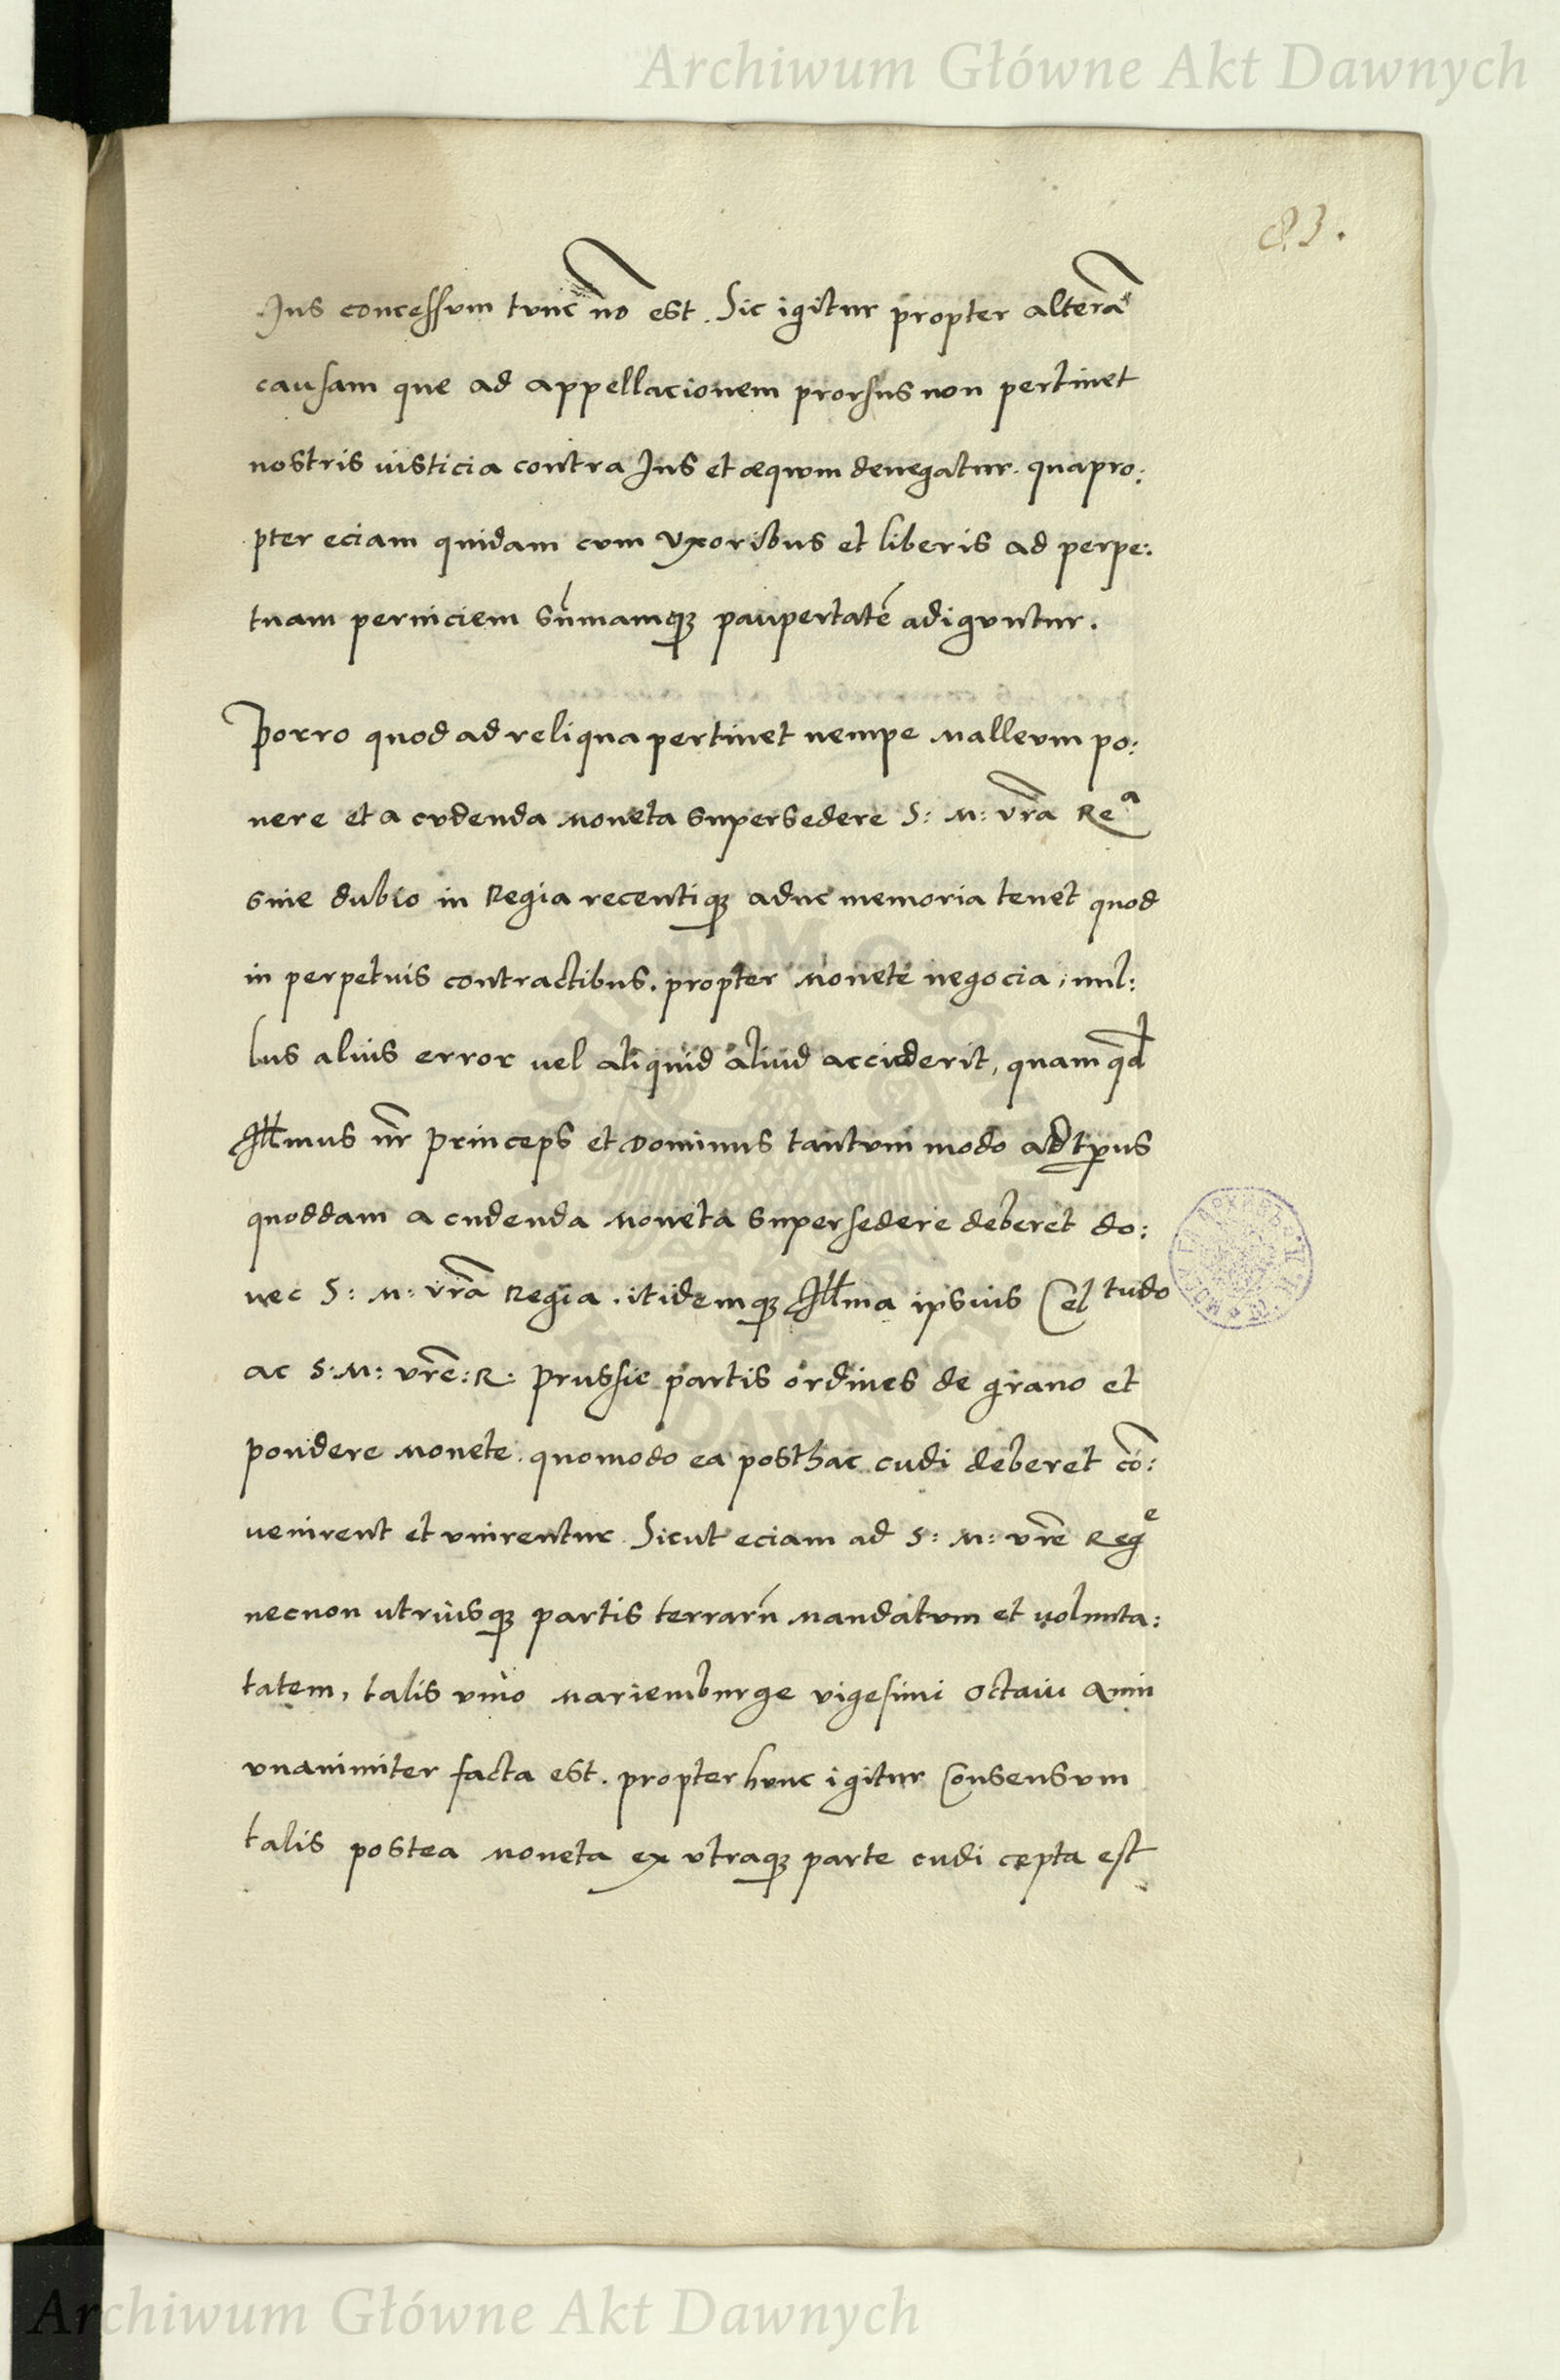 Archiwum Główne Akt Dawnych
83.
Jus concessum tunc nō est. Sic igitur propter alterā
causam que ad appellacionem prorsus non pertinet
nostris iusticia contra Jus et æquum denegatur. quapro:
pter eciam quidam cum uxoribus et liberis ad perpe:
tuam perniciem sūmamq; paupertatē adiguntur.
Porro quod ad reliqua pertinet nempe Malleum po:
nere et a cudenda Moneta supersedere S: M: vrā Reᵃ
sine dubio in Regia recentiq; aduc memoria tenet quod
in perpetuis contractibus. propter Monete negocia, nul:
lus alius error uel aliquid aliud acciderit, quam qd
Illmus nr̄ Princeps et Dominus tantum modo ad tp̱us
quoddam a cudenda Moneta supersedere deberet do:
nec S: M: vrā Regia. itidemq; Illma ipsius Celtudo
ac S: M: vrē: R. Prussie partis ordines de grano et
pondere Monete. quomodo ea posthac cudi deberet cō:
uenirent et unirentur. Sicut eciam ad S: M: vrē Regᵉ
necnon utriusq; partis terrarū Mandatum et uolunta:
tatem, talis unio Mariemburge vigesimi Octaui Anni
unanimiter facta est. propter hunc igitur Consensum
talis postea Moneta ex utraq; parte cudi cepta est
Archiwum Główne Akt Dawnych